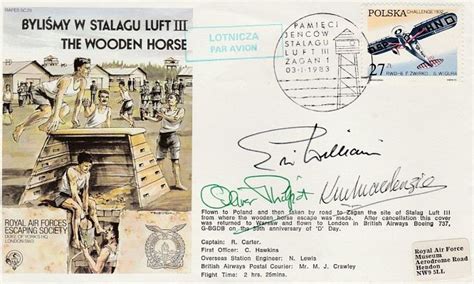 RAFES SC29
BYLIŚMY W STALAGU LUFT III
THE WOODEN HORSE
LOTNICZA
PAR AVION
PAMIĘCI
JEŃCÓW
STALAGU
LUFT III
ŻAGAŃ 1
03-1-1983
POLSKA
CHALLENGE 1932
27 ZŁ
RWD-6 F. ŻWIRKO, S. WIGURA
Eric Williams
Oliver Philpot
ROYAL AIR FORCES
ESCAPING SOCIETY
DUKE OF YORK'S HQ
LONDON SW3
Flown to Poland and then taken by road to Zagan the site of Stalag Luft III
from where the wooden horse escape was made. After cancellation this cover
was returned to Warsaw and flown to London in British Airways Boeing 737,
G-BGDB on the 39th anniversary of 'D' Day.
Captain: R. Carter.
First Officer: C. Hawkins
Overseas Station Engineer: N. Lewis
British Airways Postal Courier: Mr. M. J. Crawley
Flight Time: 2 hrs. 25mins.
Royal Air Force
Museum
Aerodrome Road
Hendon
NW9 5LL